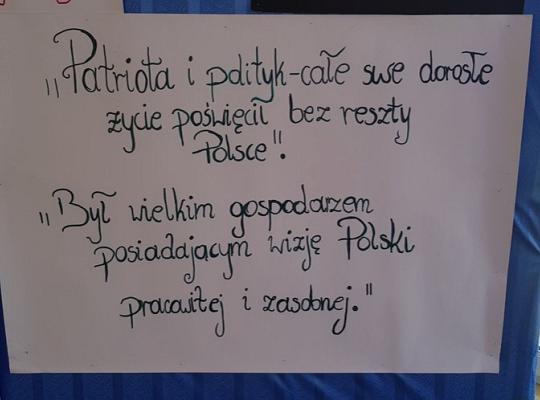 „Patriota i polityk-całe swe dorosłe
życie poświęcił bez reszty
Polsce".
„Był wielkim gospodarzem
posiadającym wizję Polski
pracowitej i zasobnej."